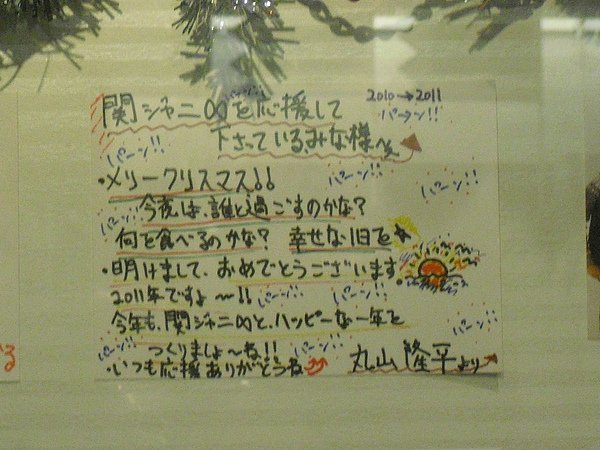 関ジャニ∞を応援して
2010→2011
パーン!!
下さっているみな様へ
パーン!!
パーン!!
パーン!!
・メリークリスマス!!
パーン!!
今夜は、誰と過ごすのかな?
何を食べるのかな? 幸せな1日を★
・明けまして、おめでとうございます。
2011年ですよ〜!! パーン!! パーン!!
今年も、関ジャニ∞と、ハッピーな一年を
パーン!!
パーン!! つくりましょ〜ね!! パーン!!
・いつも応援ありがとうね
丸山隆平より
る